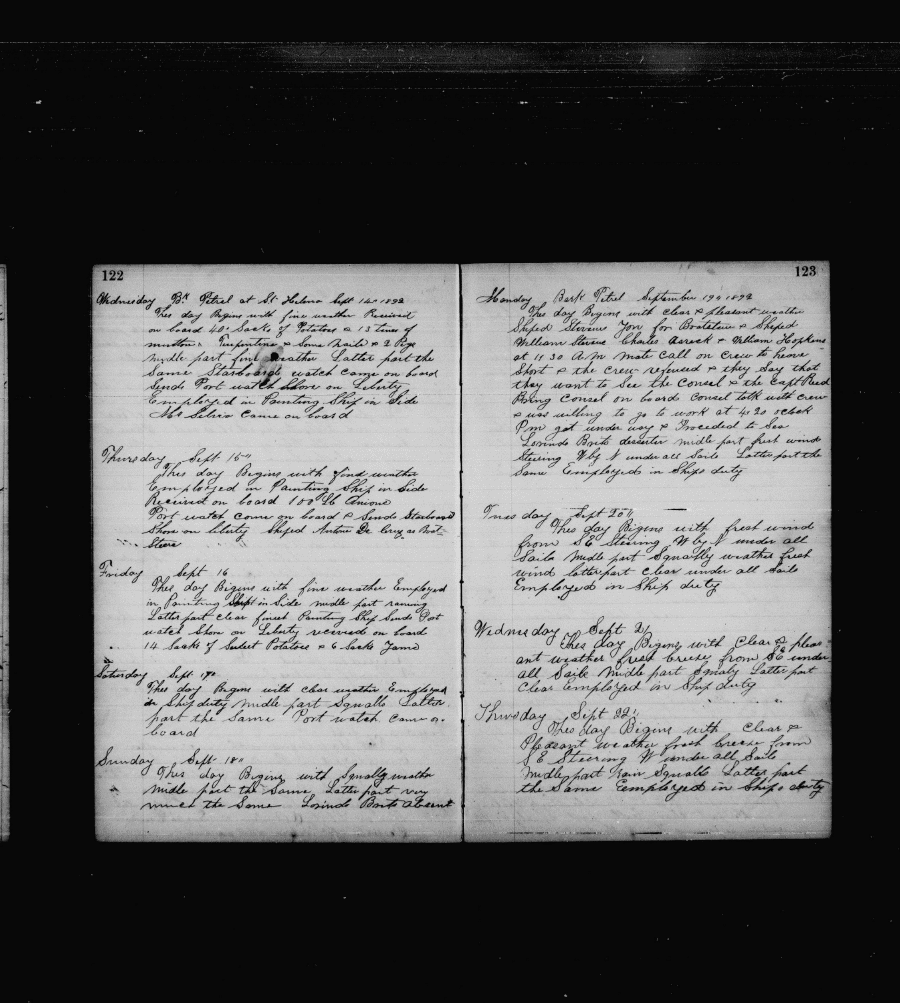 122
Wednesday Bk Petrel at St Helena Sept 14" 1892
This day Begins with fine weather Received
on board 40 Sacks of Potatoes & 13 tines of
mutton Turpentine & Some Nails & 2 Pigs
midle part fine weather Latter part the
Same Starboard watch came on board
Sends Port watch Shore on Liberty
Employed in Painting Ship in Side
Mr Silvia came on board
Thursday Sept 15"
This day Begins with fine weather
Employed in Painting Ship in Side
Received on board 100 Lb Anions
Port watch come on board & Sends Starboard
Shore on liberty Shiped Antone De Cruz as Boat-
Steere
Friday Sept 16
This day Begins with fine weather Employed
in Painting Ship in Side midle part raining
Latter part clear finist Painting Ship Sends Port
watch Shore on Liberty received on board
14 Sacks of Sweet Potatoes & 6 Sacks Yams
Saturday Sept 17"
This day Begins with clear weather Employed
in Ship duty midle part Squalls Latter
part the Same Port watch came on
board
Sunday Sept 18"
This day Begins with Squally weather
midle part the Same Latter part very
much the Same Lorindo Brito absent
123
Monday Bark Petrel September 19" 1892
This day Begins with clear & pleasant weather
Shiped Stevens for Boatsteer & Shiped
William Stevens Charles & William Hopkins
at 11 30 A.M mate call on crew to heave
Short & the crew refused & they Say that
they want to See the Consel & the Capt Reed
Bring Consel on board Consel talk with crew
& was willing to go to work at 4.20 oclock
P.m got under way & Proceded to Sea
Lorindo Brito deserter midle part fresh wind
Steering W by N under all Sails Latter part the
Same Employed in Ships duty
Tuesday Sept 20"
This day Bigins with fresh wind
from SE Steering W by N under all
Sails midle part Squally weather fresh
wind latter part clear under all Sails
Employed in Ship duty
Wednesday Sept 21
This day Begins with Clear & pleas
ant weather fresh breeze from SE under
all Sails midle part Squaly Latter part
Clear Employed in Ship duty
Thursday Sept 22"
This day Bigins with Clear &
Pleasant weather fresh breeze from
SE Steering W under all Sails
midle part Rain Squalls Latter part
the Same Employed in Ships duty